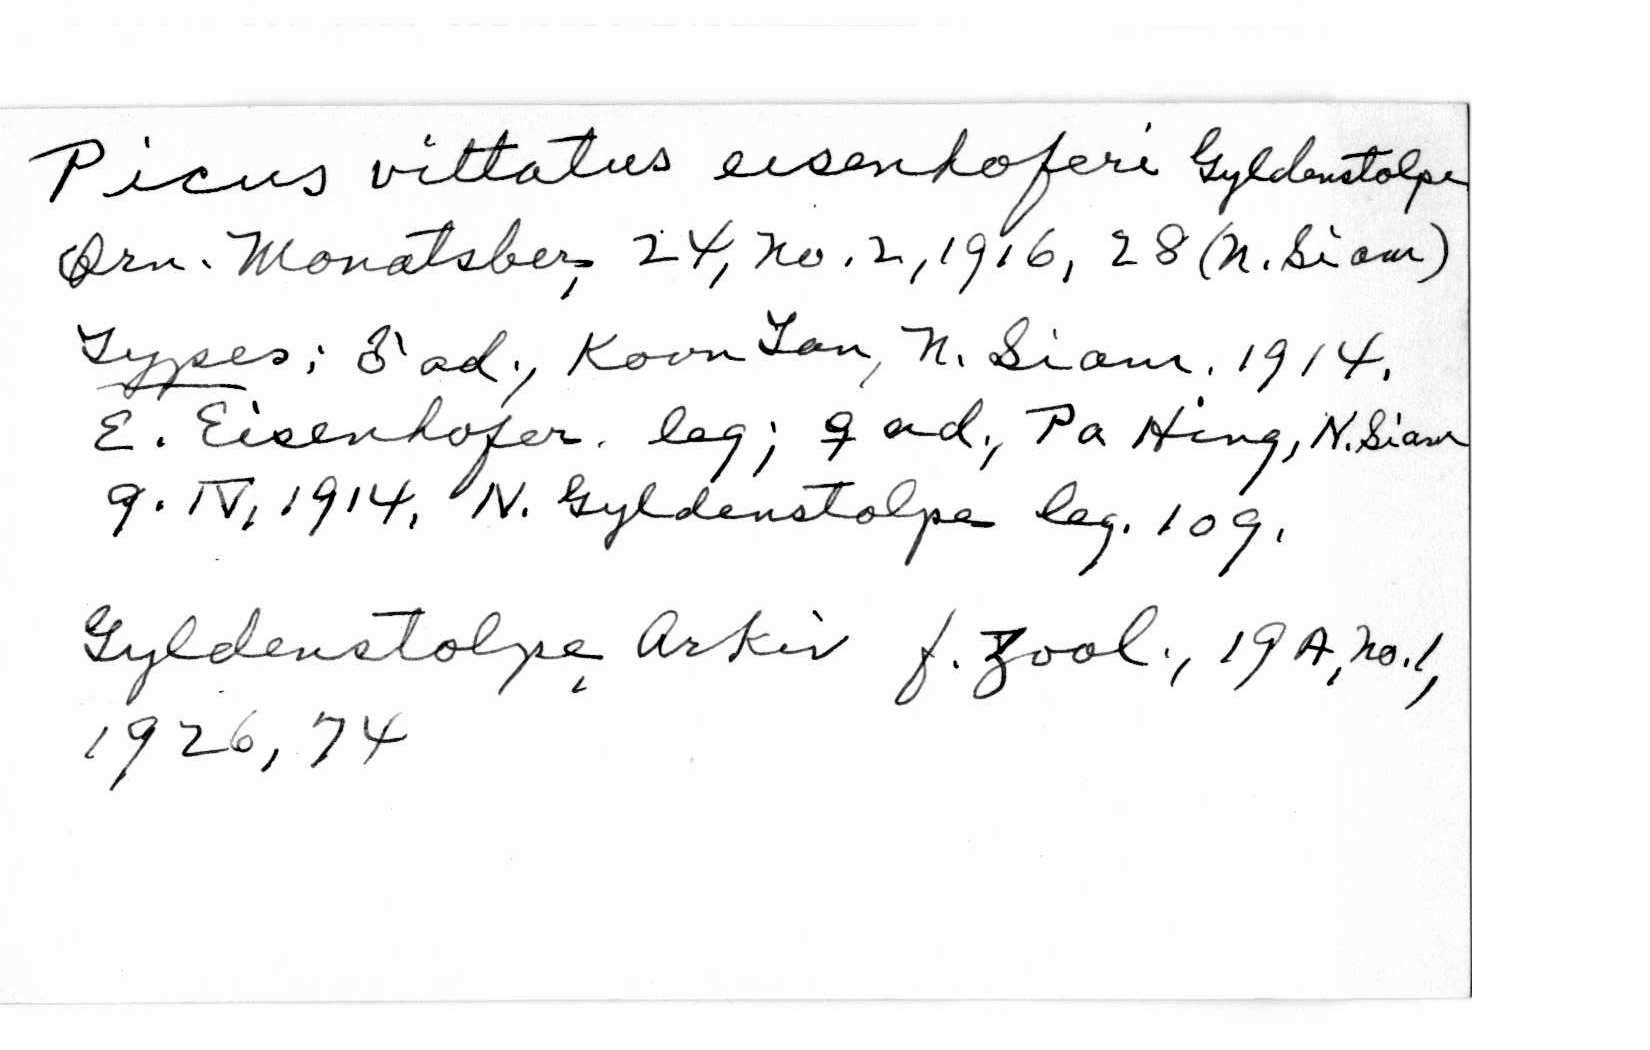 Picus vittatus eisenhoferi Gyldenstolpe
Orn. Monatsber, 24, no. 2, 1916, 28 (N. Siam)
Types; ♂ ad., Koon Tan, N. Siam. 1914.
E. Eisenhofer. leg; ♀ ad., Pa Hing, N. Siam
9. IV, 1914, N. Gyldenstolpe leg. 109.
Gyldenstolpe, Arkiv f. Zool., 19 A, no. 1,
1926, 74